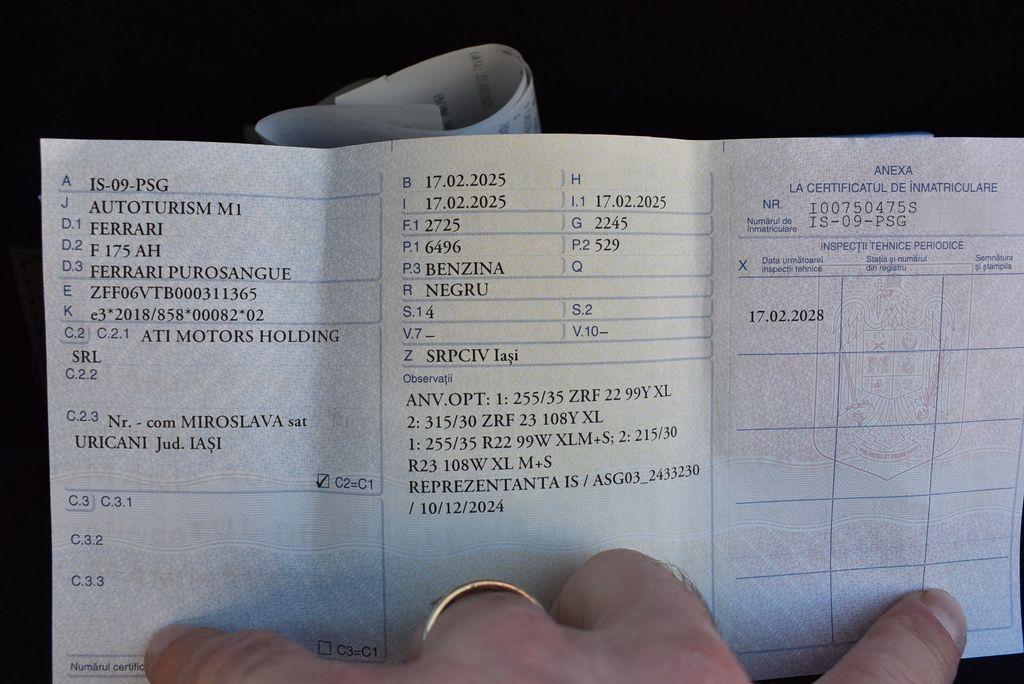 A IS-09-PSG
J AUTOTURISM M1
D.1 FERRARI
D.2 F 175 AH
D.3 FERRARI PUROSANGUE
E ZFF06VTB000311365
K e3*2018/858*00082*02
C.2 C.2.1 ATI MOTORS HOLDING
SRL
C.2.2
C.2.3 Nr. - com MIROSLAVA sat
URICANI Jud. IAȘI
C2=C1
C.3 C.3.1
C.3.2
C.3.3
C3=C1
Numărul
B 17.02.2025 H
I 17.02.2025 I.1 17.02.2025
F.1 2725 G 2245
P.1 6496 P.2 529
P.3 BENZINA Q
R NEGRU
S.1 4 S.2
V.7 – V.10 –
Z SRPCIV Iași
Observații
ANV.OPT: 1: 255/35 ZRF 22 99Y XL
2: 315/30 ZRF 23 108Y XL
1: 255/35 R22 99W XLM+S; 2: 215/30
R23 108W XL M+S
REPREZENTANTA IS / ASG03_2433230
/ 10/12/2024
ANEXA
LA CERTIFICATUL DE ÎNMATRICULARE
NR. I00750475S
Numărul de înmatriculare IS-09-PSG
INSPECȚII TEHNICE PERIODICE
X Data următoarei inspecții tehnice Stația și numărul din registru Semnătura și ștampila
17.02.2028